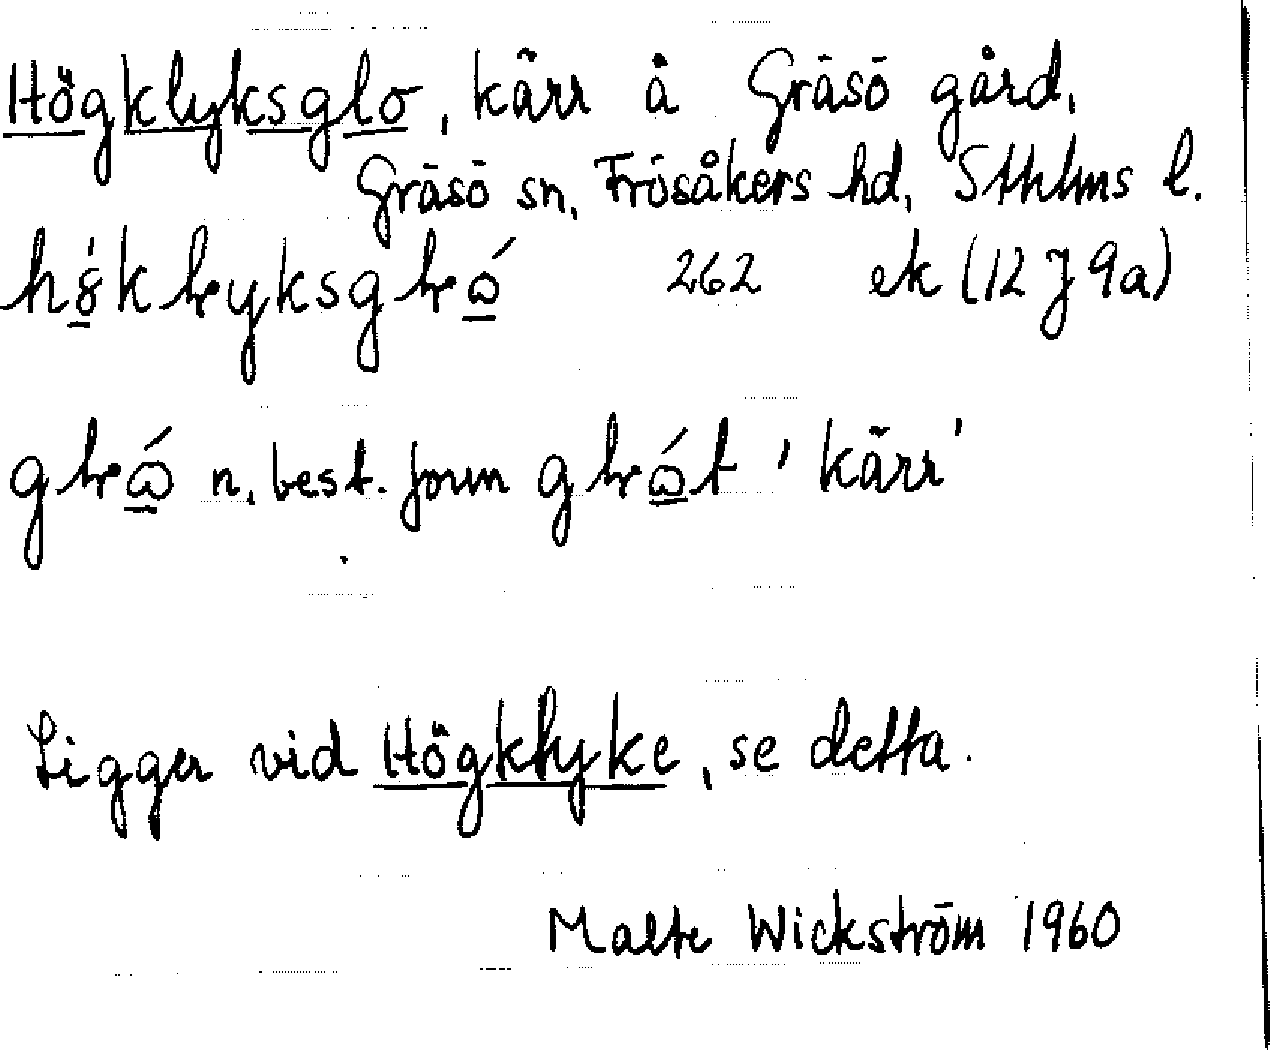 Högklyksglo, kärr å Gräsö gård,
Gräsö sn, Frösåkers hd, Sthlms l.
262 ek (12 J 9a)
n. best. form 'kärr'
Ligger vid Högklyke, se detta.
Malte Wickström 1960